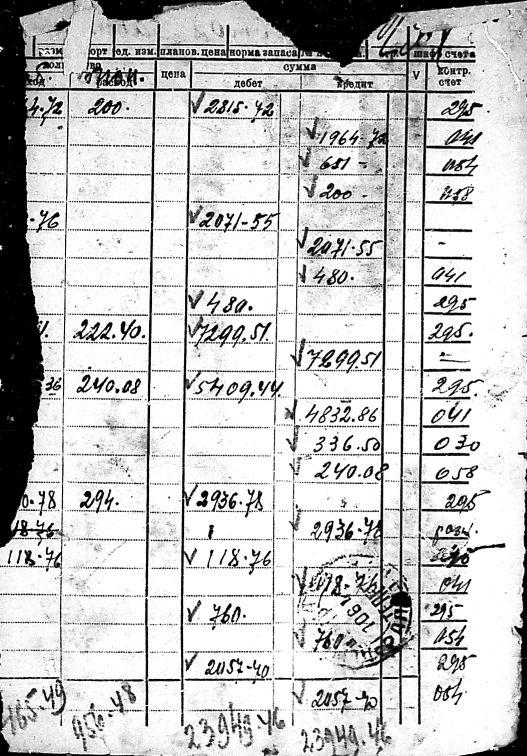 ед. изм. планов. цена норма запаса
шиф. счета
расход цена сумма контр. счет
дебет кредит V
4-72 200. √2815-72 295
√1964-72 041
√651 - 054
√200 -
-76 √2071-55
√2071-55 -
√480. 041
√480. 295
222.40. √7299.51. 295.
√7299.51 -
36 240.08 √5409.44. 295.
4832.86 041
√336.50 030
√240.08 058
0-78 294. √2936.78 295
18-76 √2936-78
118-76 √118-76
√118-76 041
√760. 295
√760 054
√2057-70 295
√2057-70 054
165-49 956-48 23949-46 23949-46